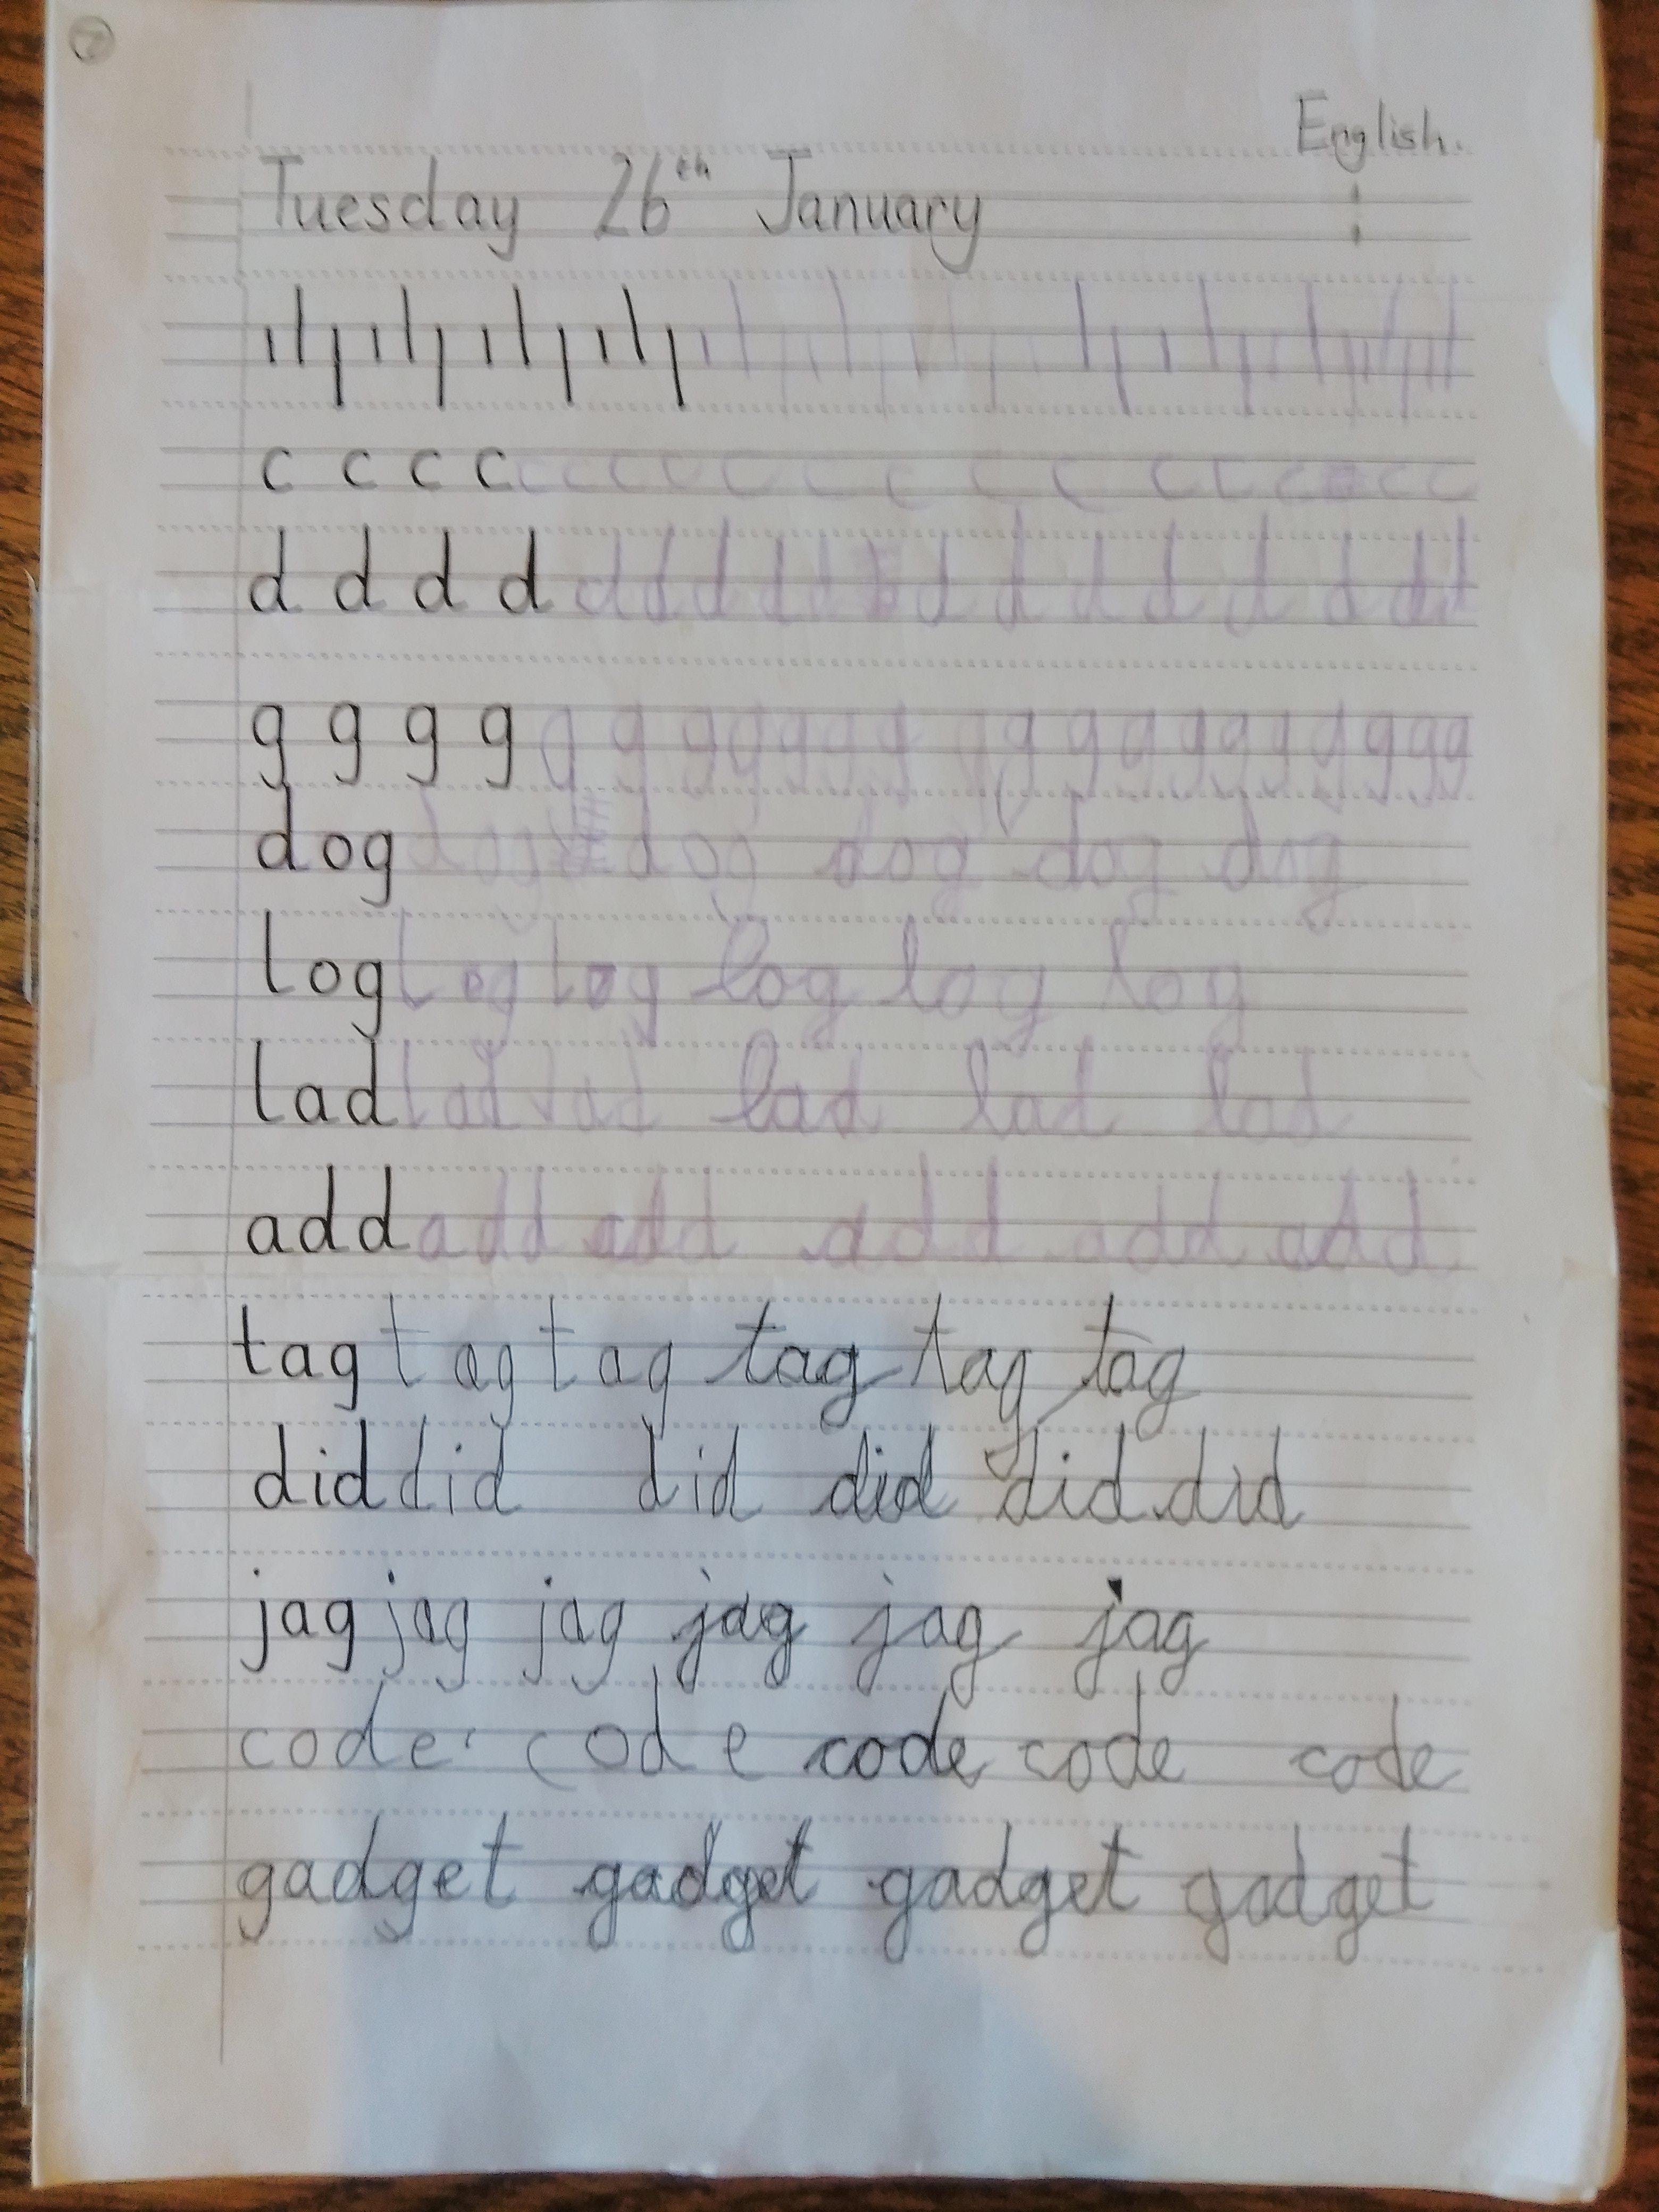 English.
Tuesday 26th January
c c c c c c c c c c c c c c c c c c c
d d d d d d d d d d d d d d d d d d d
g g g g g g g g g g g g g g g g g g g g g
dog dog dog dog dog dog
log log log log log log
lad lad lad lad lad lad
add add add add add add
tag tag tag tag tag tag
did did did did did did
jag jag jag jag jag jag
code code code code code
gadget gadget gadget gadget